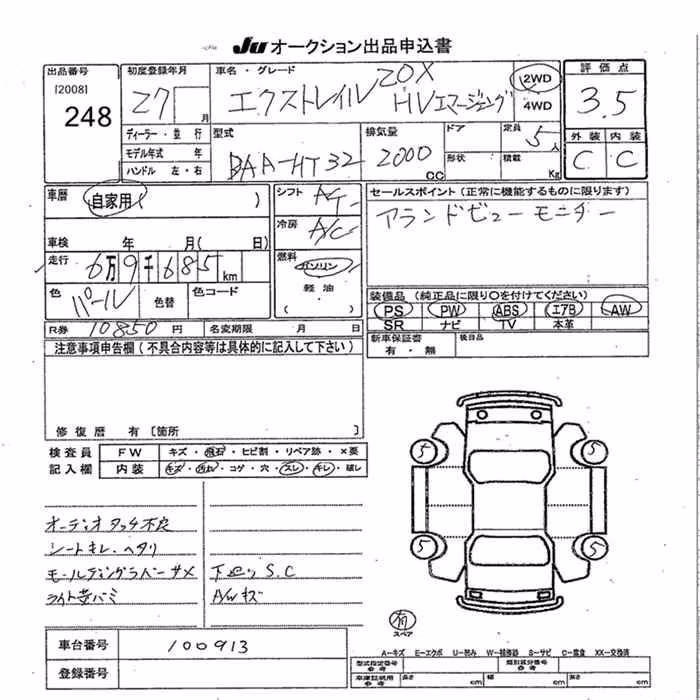 Ju オークション出品申込書
出品番号
[2008]
248
初度登録年月
27 月
ディーラー・並行
モデル年式 年
ハンドル 左・右
車名・グレード
20X
エクストレイル HVエマージェンシ
2WD
4WD
型式
DAA-HT32
排気量
2000
CC
ドア
形状
定員
5人
積載
Kg
評価点
3.5
外装 内装
C C
車歴 自家用( )
車検 年 月( 日)
走行 6万9千685km
色 パール 色替 色コード
R券 10850 円 名変期限 月 日
シフト A/T
冷房 A/C
燃料 ガソリン
軽油
( )
セールスポイント(正常に機能するものに限ります)
アランドビューモニター
装備品(純正品に限り〇を付けてください)
PS PW ABS エアB AW
SR ナビ TV 本革
新車保証書
有・無
後日品
注意事項申告欄(不具合内容等は具体的に記入して下さい)
修復歴 有 [箇所 ]
検査員 FW キズ・飛石・ヒビ割・リペア跡・×要
記入欄 内装 キズ・汚れ・コゲ・穴・スレ・キレ・破レ
オーディオタッチ不良
シートキレ、ヘタリ
モールディングラバーサメ
ライト黄バミ
下廻りS.C
A/Wキズ
5 5
5 5
有
スペア
A-キズ E-エクボ U-凹み W-補修跡 S-サビ C-腐食 XX-交換済
車台番号 100913
登録番号
型式指定番号
参考
類別区分番号
参考
車庫証明用
参考
長さ cm 幅 cm 高さ cm